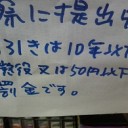 際に提出
引きは10年以下
懲役又は50万以下
罰金です。